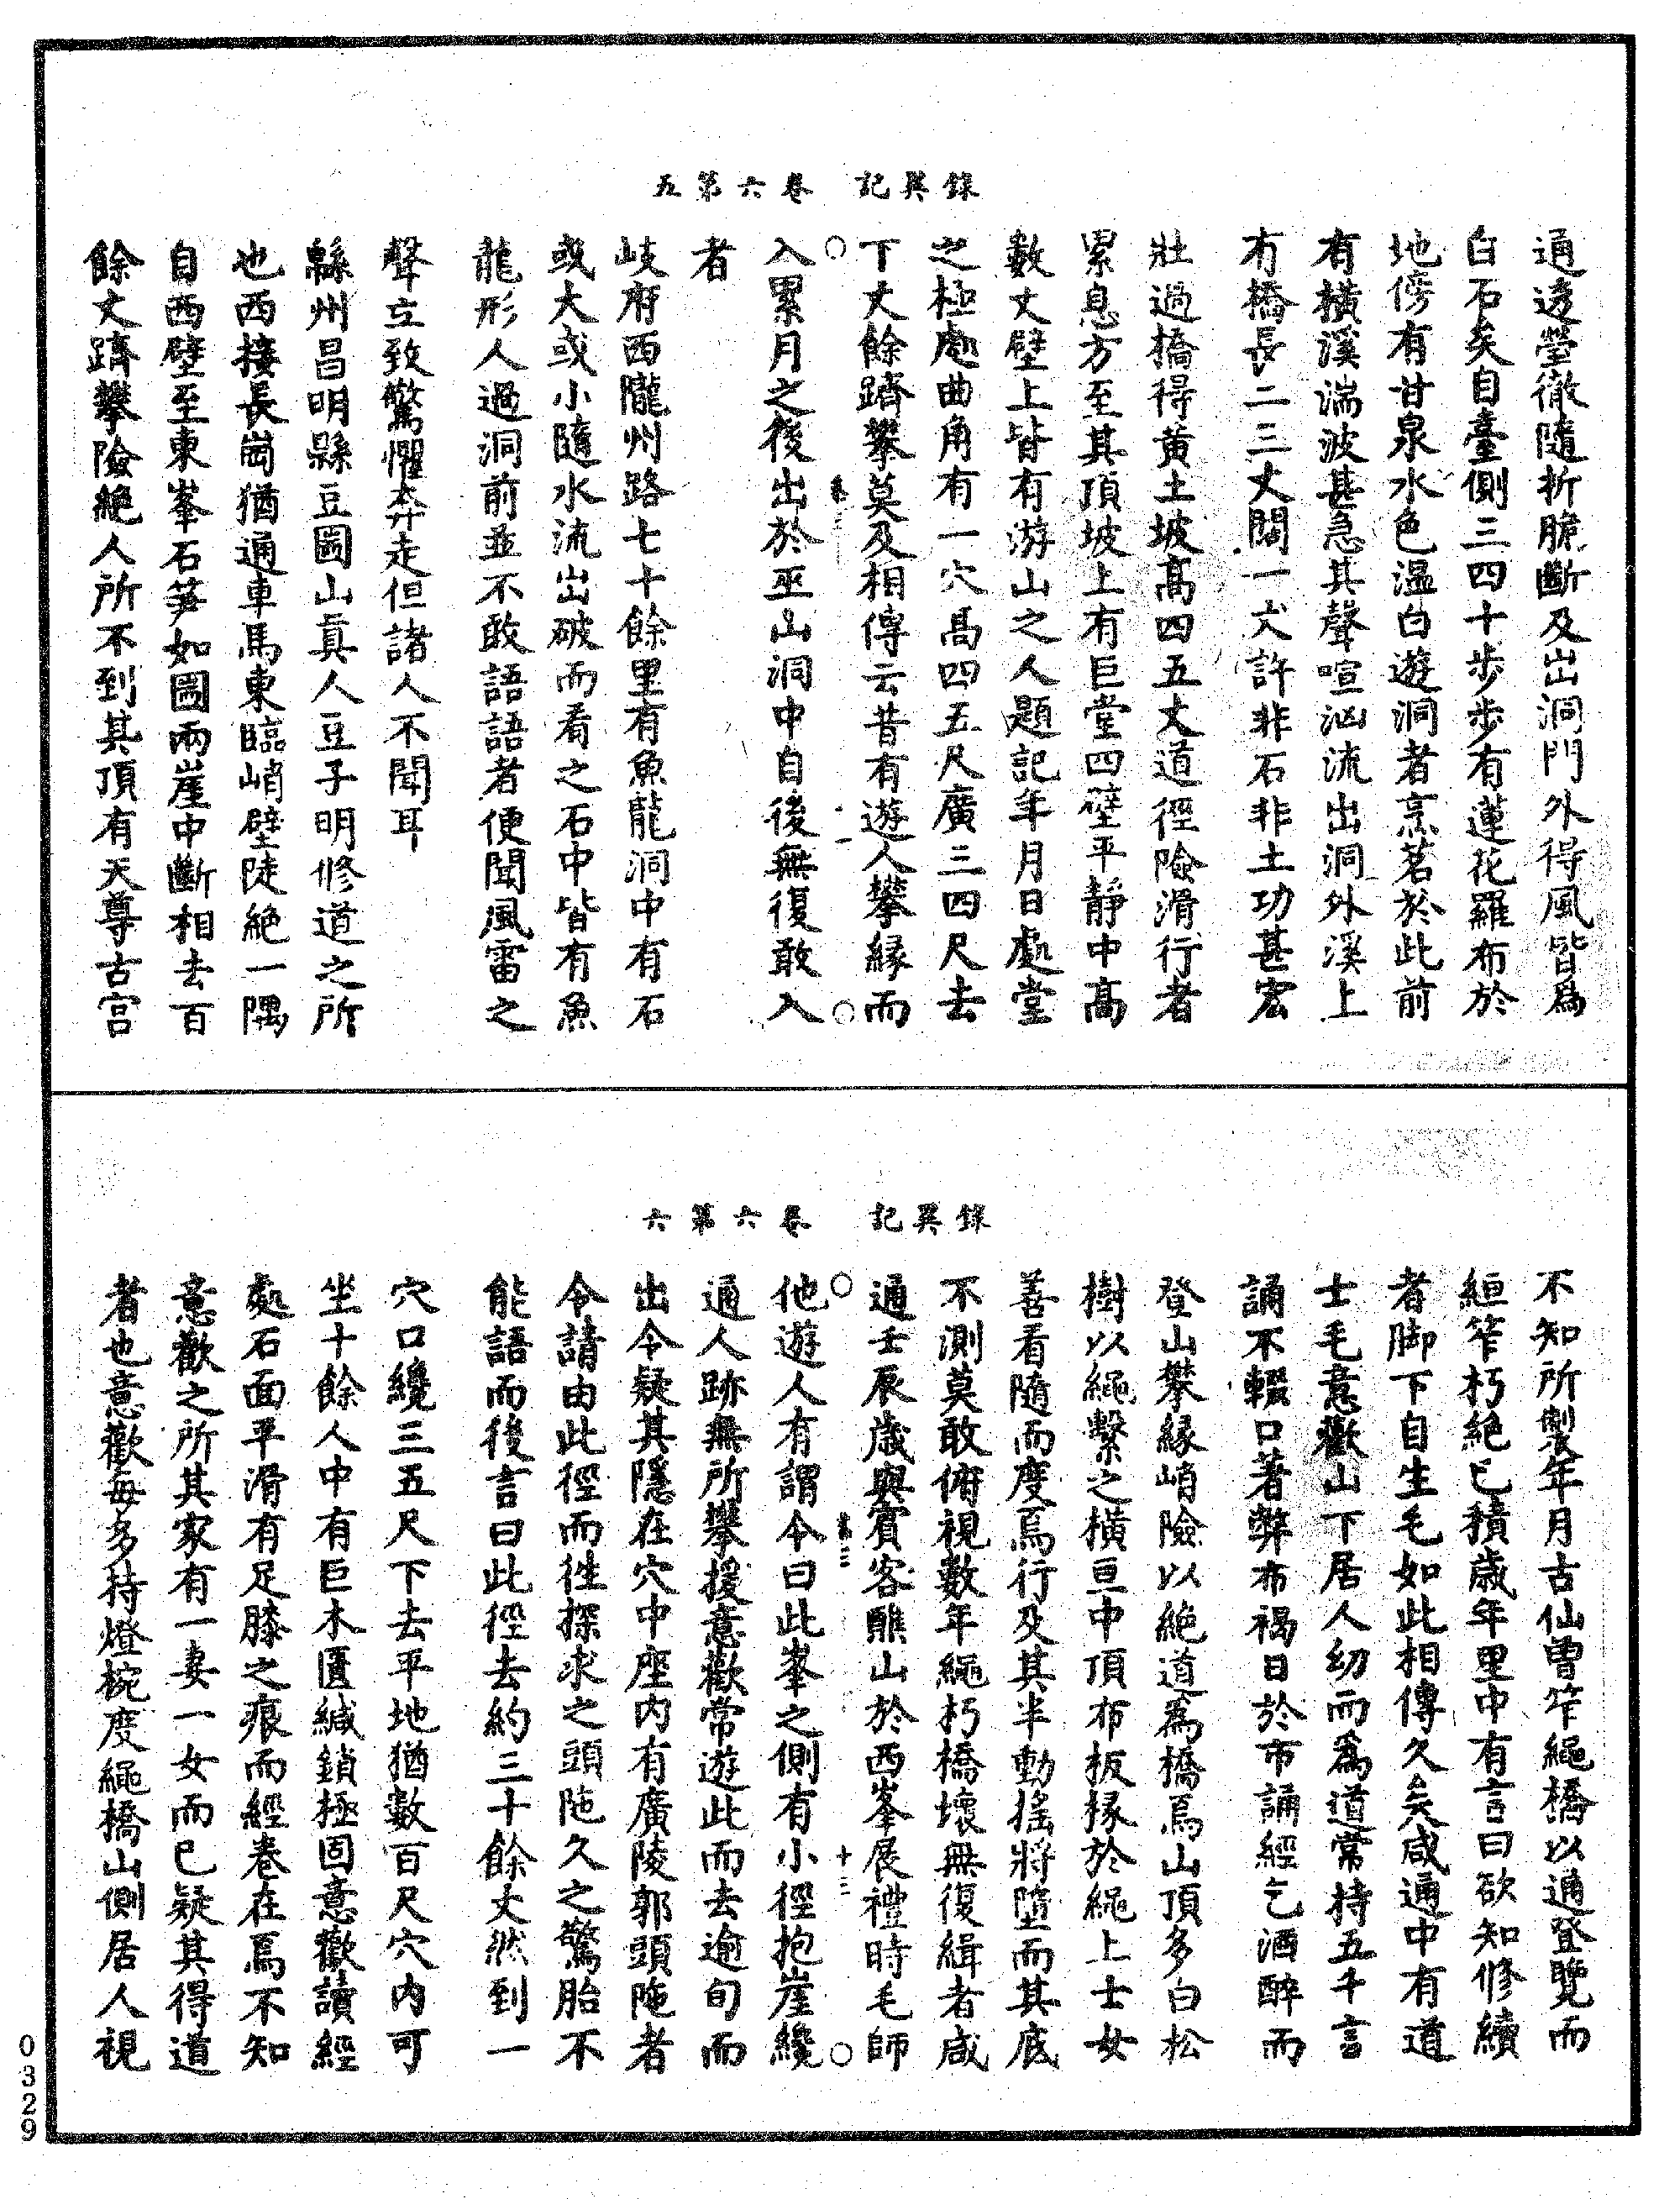 錄異記　卷六第五
通透瑩徹隨折脆斷及出洞門外得風皆為
白石矣自臺側三四十步步有蓮花羅布於
地傍有甘泉水色溫白遊洞者烹茗於此前
有橫溪湍波甚急其聲喧洶流出洞外溪上
有橋長二三丈闊一丈許非石非土功甚宏
壯過橋得黃土坡高四五丈道徑險滑行者
累息方至其頂坡上有巨堂四壁平靜中高
數丈壁上皆有游山之人題記年月日處堂
之極處曲角有一穴高四五尺廣三四尺去
下丈餘躋攀莫及相傳云昔有遊人攀緣而
入累月之後出於巫山洞中自後無復敢入
者
岐府西隴州路七十餘里有魚龍洞中有石
或大或小隨水流出破而看之石中皆有魚
龍形人過洞前並不敢語語者便聞風雷之
聲立致驚懼奔走但諸人不聞耳
緜州昌明縣豆圌山真人豆子明修道之所
也西接長崗猶通車馬東臨峭壁陡絕一隅
自西壁至東峯石筍如圌兩崖中斷相去百
餘丈躋攀險絕人所不到其頂有天尊古宮
錄異記　卷六第六
不知所製年月古仙曾笮繩橋以通登覽而
絚笮朽絕已積歲年里中有言曰欲知修續
者脚下自生毛如此相傳久矣咸通中有道
士毛意歡山下居人幼而為道常持五千言
誦不輟口著弊布褐日於市誦經乞酒醉而
登山攀緣峭險以絕道為橋焉山頂多白松
樹以繩繫之橫亘中頂布板椽於繩上士女
善看隨而度焉行及其半動搖將墮而其底
不測莫敢俯視數年繩朽橋壞無復緝者咸
通壬辰歲與賓客醮山於西峯展禮時毛師
他遊人有謂今曰此峯之側有小徑抱崖纔
通人跡無所攀援意歡常遊此而去逾旬而
出今疑其隱在穴中座內有廣陵郭頭陁者
令請由此徑而徃探求之頭陁久之驚胎不
能語而後言曰此徑去約三十餘丈然到一
穴口纔三五尺下去平地猶數百尺穴內可
坐十餘人中有巨木匱緘鎖極固意歡讀經
處石面平滑有足膝之痕而經卷在焉不知
意歡之所其家有一妻一女而已疑其得道
者也意歡每多持燈椀度繩橋山側居人視
0329